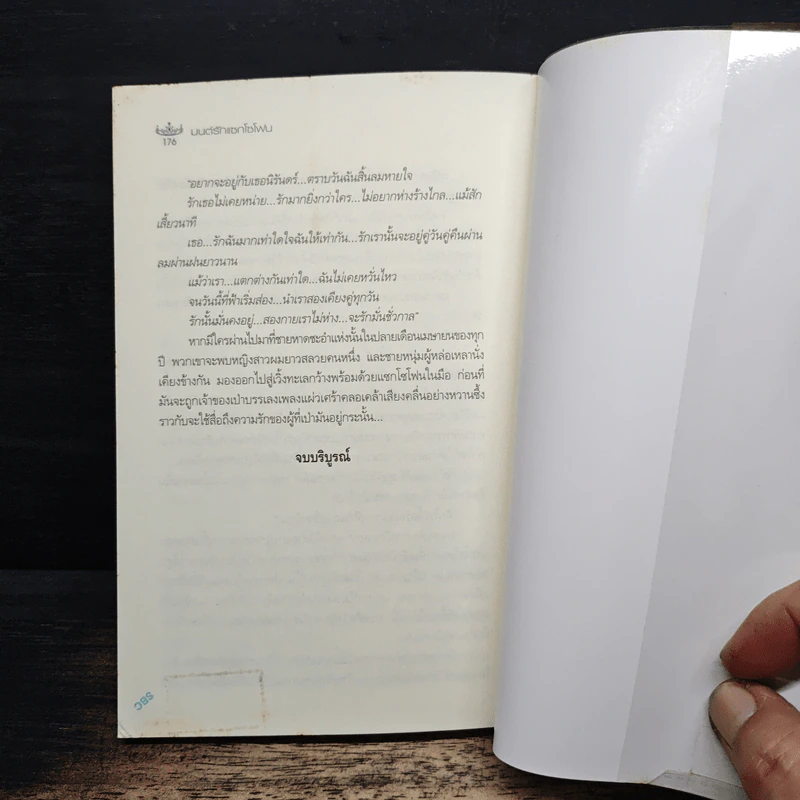 มนต์รักแซกโซโฟน
176
"อยากจะอยู่กับเธอนิรันดร์...ตราบวันฉันสิ้นลมหายใจ
รักเธอไม่เคยหน่าย...รักมากยิ่งกว่าใคร...ไม่อยากห่างร้างไกล...แม้สัก
เสี้ยวนาที
เธอ...รักฉันมากเท่าใดใจฉันให้เท่ากัน...รักเรานั้นจะอยู่คู่วันคู่คืนผ่าน
ลมผ่านฝนยาวนาน
แม้ว่าเรา...แตกต่างกันเท่าใด...ฉันไม่เคยหวั่นไหว
จนวันนี้ที่ฟ้าเริ่มส่อง...นำเราสองเคียงคู่ทุกวัน
รักนั้นมั่นคงอยู่...สองกายเราไม่ห่าง...จะรักมั่นชั่วกาล"
หากมีใครผ่านไปมาที่ชายหาดชะอำแห่งนั้นในปลายเดือนเมษายนของทุก
ปี พวกเขาจะพบหญิงสาวผมยาวสลวยคนหนึ่ง และชายหนุ่มผู้หล่อเหลานั่ง
เคียงข้างกัน มองออกไปสู่เวิ้งทะเลกว้างพร้อมด้วยแซกโซโฟนในมือ ก่อนที่
มันจะถูกเจ้าของเป่าบรรเลงเพลงแผ่วเศร้าคลอเคล้าเสียงคลื่นอย่างหวานซึ้ง
ราวกับจะใช้สื่อถึงความรักของผู้ที่เป่ามันอยู่กระนั้น...
จบบริบูรณ์
SBC